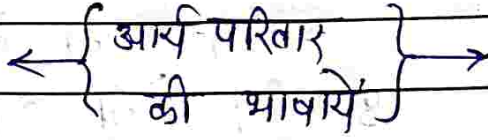 आर्य परिवार
की भाषायें